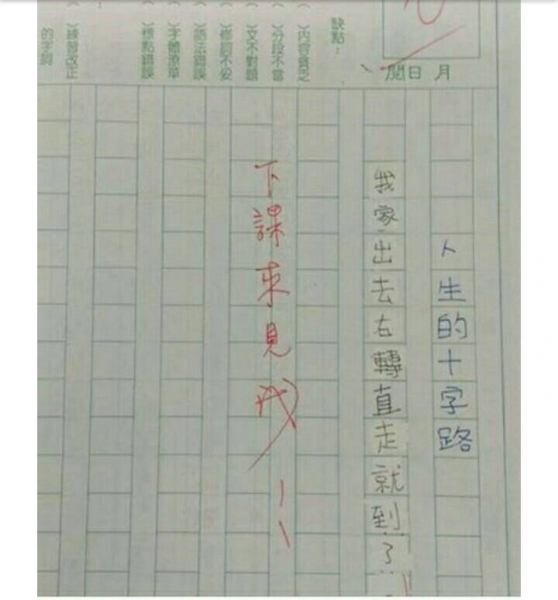 月日閱
人生的十字路
我家出去右轉直走就到了
缺點：
( )內容貧乏
( )分段不當
( )文不對題
( )修詞不妥
( )語法錯誤
( )字體潦草
( )標點錯誤
練習改正
的字詞
下課來見我!!